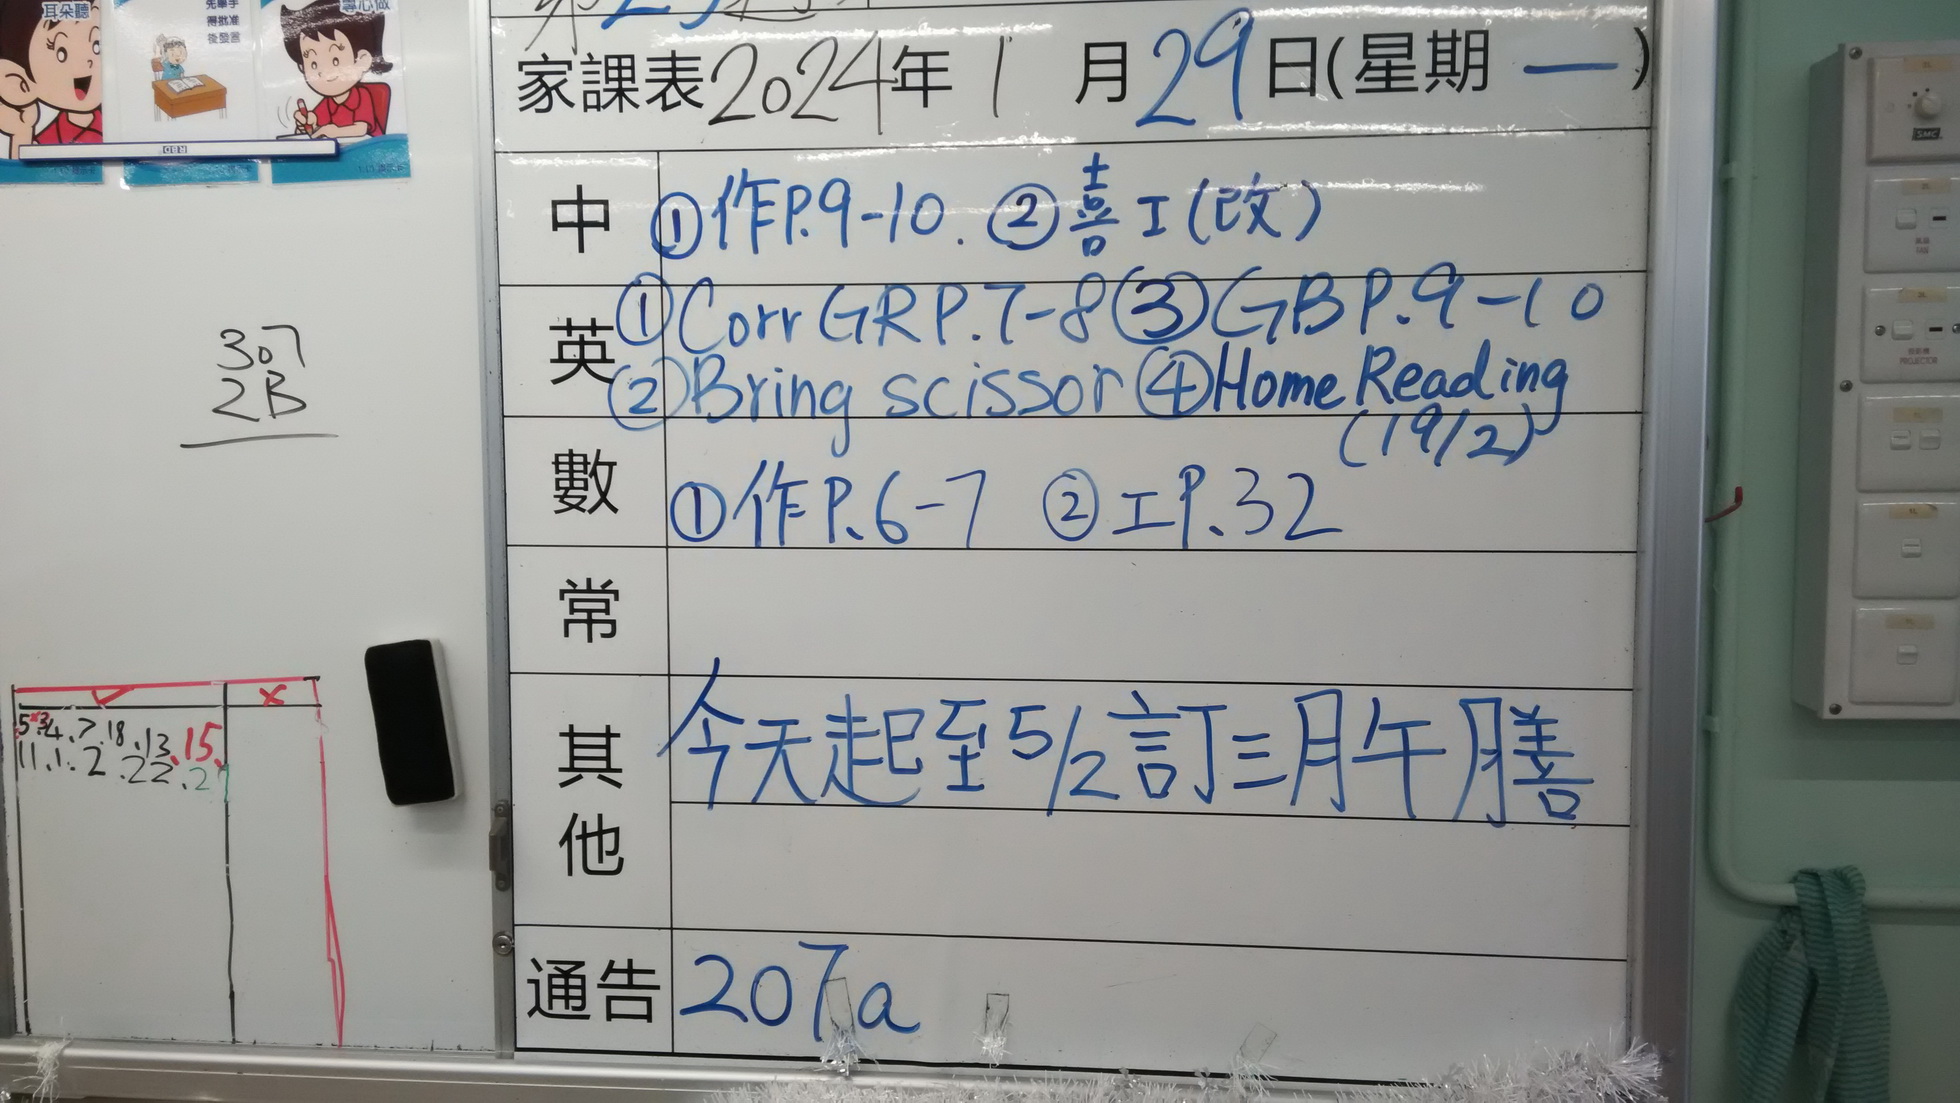 耳朵聽
先舉手
得批准
後發言
專心做
家課表2024年1月29日(星期一)
中 ①作P.9-10. ②喜工(改)
英 ①Corr GRP.7-8 ③GBP.9-10
②Bring scissor ④Home Reading
(19/2)
數 ①作P.6-7 ②工P.32
常
其他 今天起至5/2訂三月午膳
通告 207a
307
2B
✓ ×
4.7.18.13.15.
11.1.2.22.
SMC
PROJECTOR